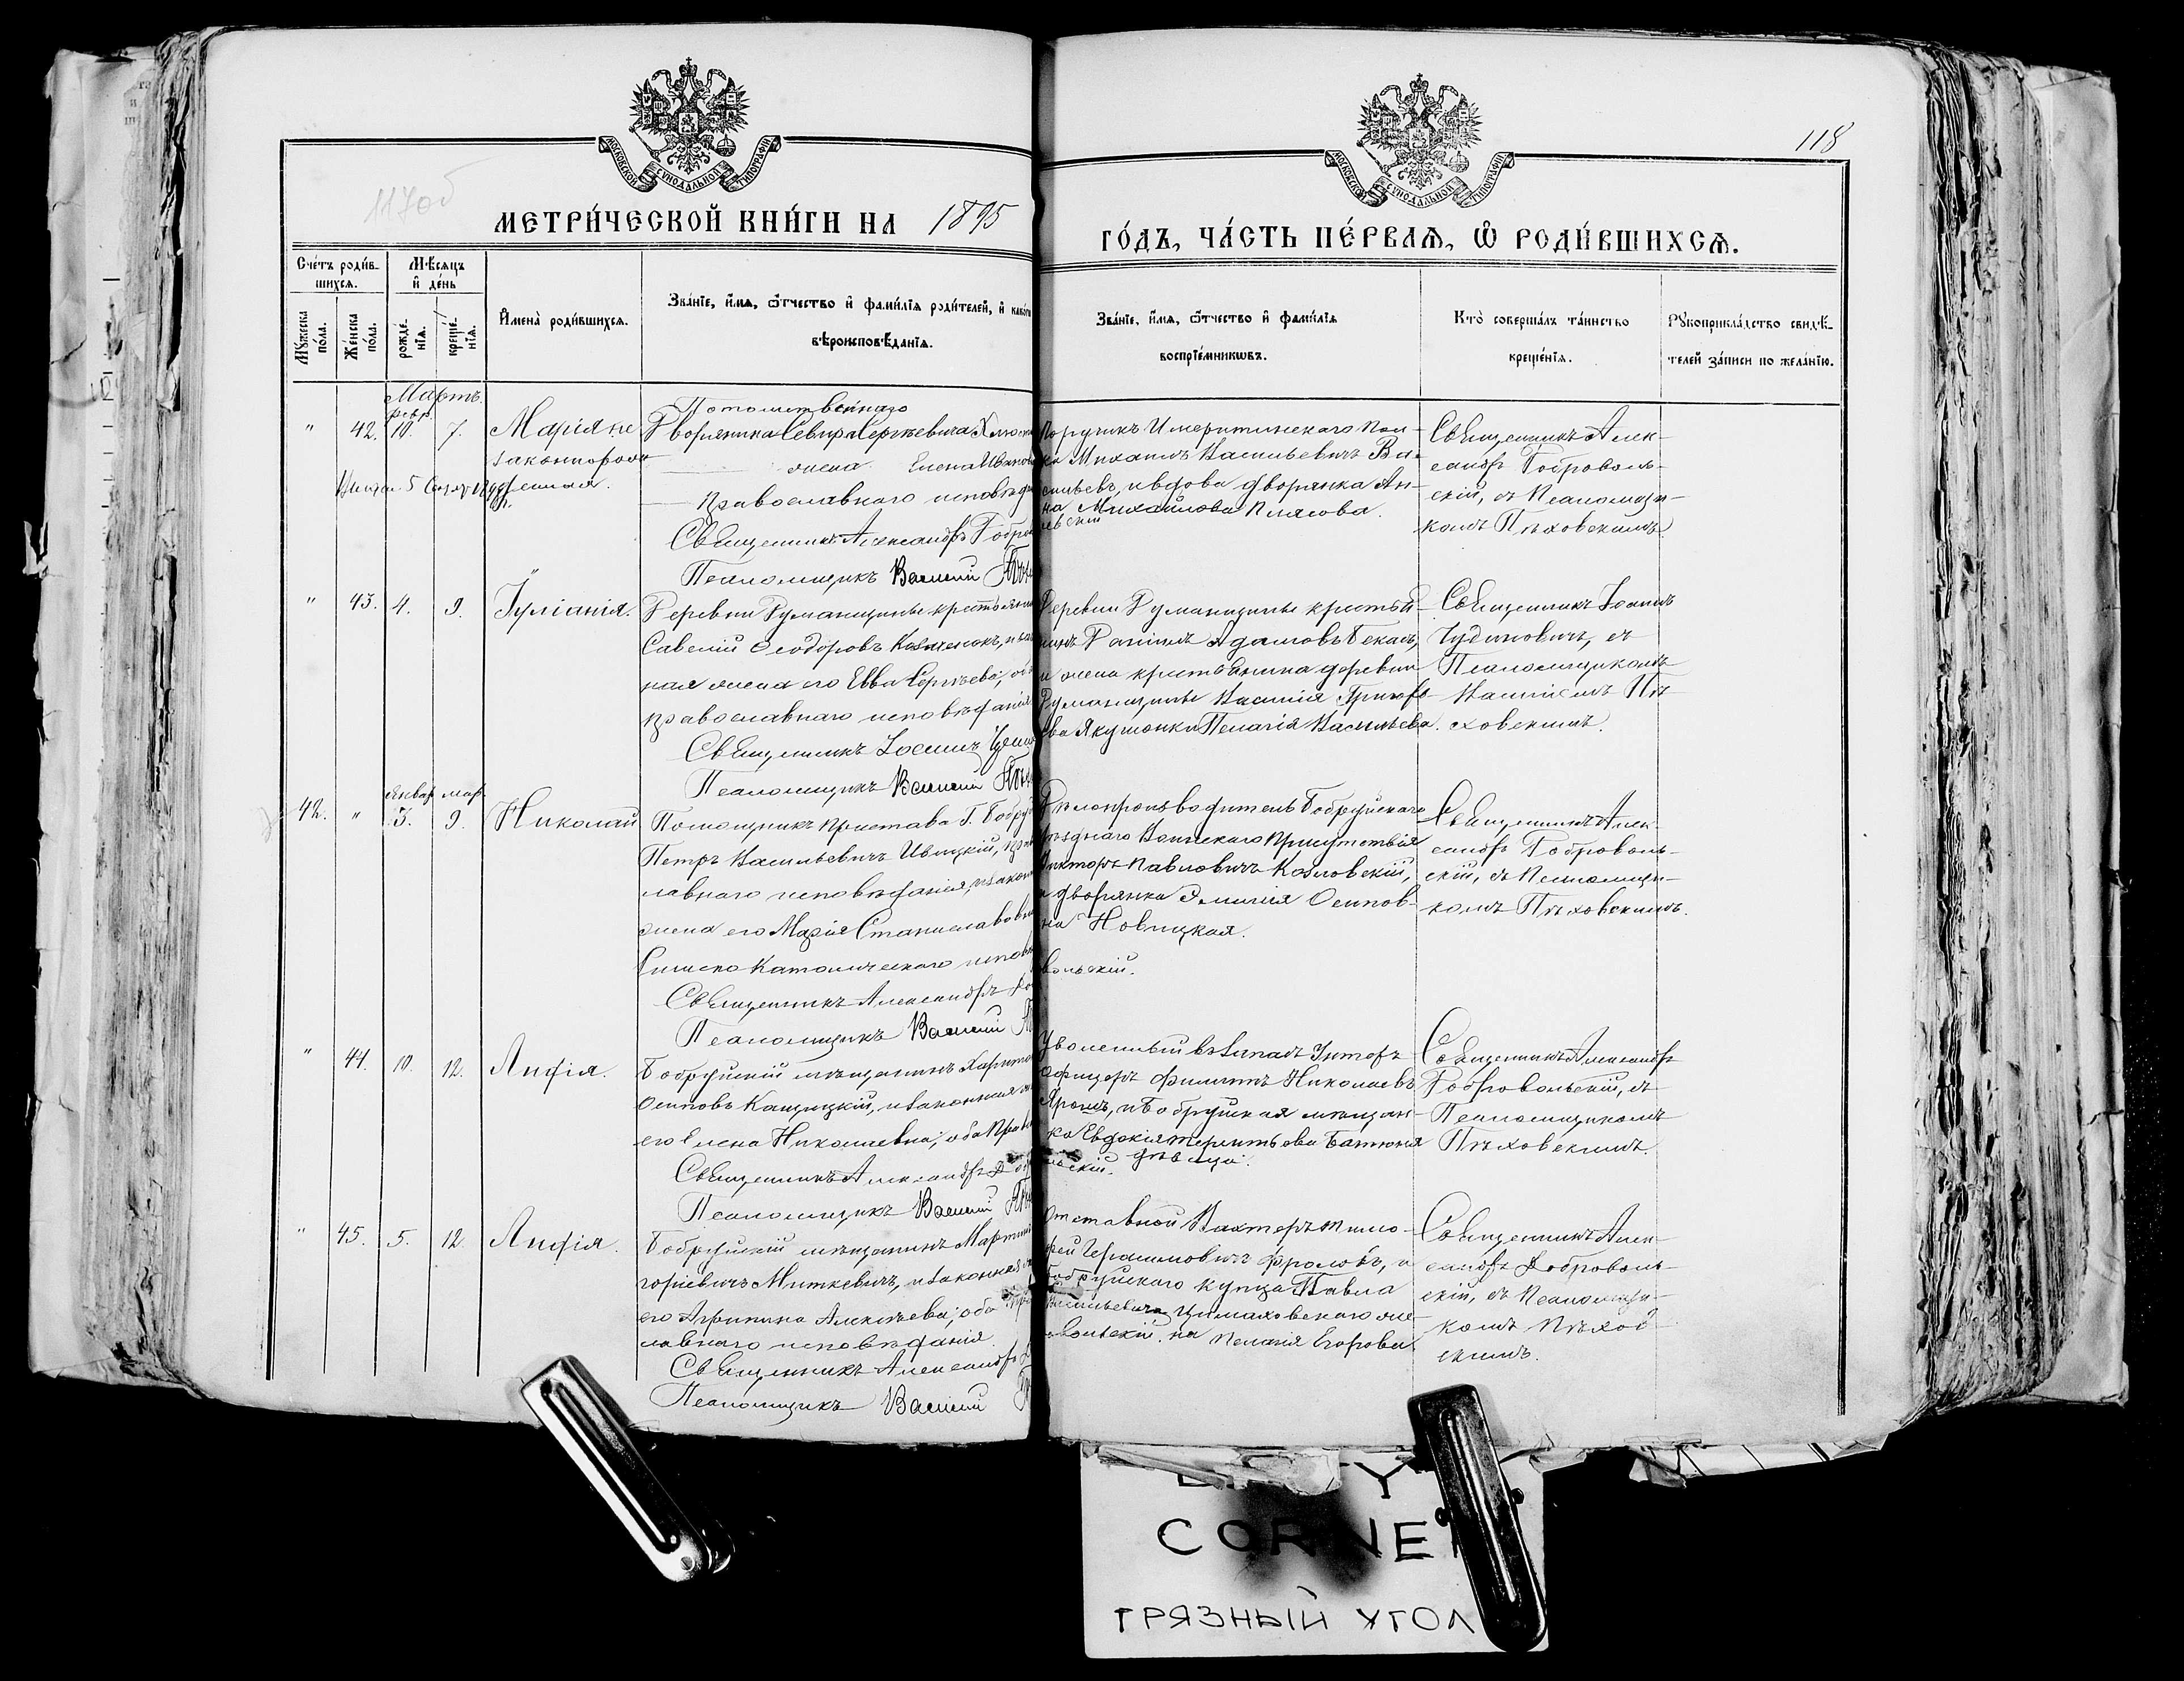 118
117об
МОСКОВСКОЙ СѴНОДАЛЬНОЙ ТИПОГРАФІИ
МОСКОВСКОЙ СѴНОДАЛЬНОЙ ТИПОГРАФІИ
МЕТРИ́ЧЕСКОЙ КНИ́ГИ НА 1895
ГО́ДЪ, ЧА́СТЬ ПЕ́РВАѦ, Ѽ РОДИ́ВШИХСѦ.
Сче́тъ роди́в-
шихсѧ.
Мѣ́сѧцъ
и҆ де́нь
Мꙋ́жеска
по́ла.
Же́нска
по́ла.
рожде́-
нїѧ.
креще́-
нїѧ.
И҆мена̀ роди́вшихсѧ.
Зва́нїе, и҆́мѧ, ѻ҆́тчество и҆ фами́лїѧ роди́телей, и҆
вѣроисповѣ́данїѧ.
Зва́нїе, и҆́мѧ, ѻ҆́тчество и҆ фами́лїѧ
воспрїе́мникѡвъ.
Кто̀ соверша́лъ та́инство
креще́нїѧ.
Рꙋкоприкла́дство свидѣ́-
телей за́писи по жела́нїю.
Мартъ.
февр.
"
42.
10.
7.
Марія не
законнорож-
денная.
Потомственнаго
Дворянина Сергѣевича
жена Елена Иванов
Православнаго исповѣда
Священникъ Александръ Добров
Псаломщикъ Василій
Поручикъ Имеритинскаго пол-
ка Михаилъ Васильевичъ Ва-
сильевъ, и вдова дворянка Ан-
на Михайлова
Священникъ Алек-
сандръ Доброволь-
скій, съ Псаломщи-
комъ Пѣховскимъ.
"
43.
4.
9.
Іуліанія.
Деревни Думанщины крестьянин
Савелій Ѳеодоровъ Козменокъ, и зак
ная жена его Евва Сергѣева; оба
православнаго исповѣданія
Священникъ Іоаннъ
Псаломщикъ Василій
Деревни Думанщины крестья-
нинъ Адамовъ Бекасъ,
и жена крестьянина деревни
Думанщины Василія
ва Якушонки Пелагія Васильева.
Священникъ Іоаннъ
Чудиновичъ, съ
Псаломщикомъ
Василіемъ Пѣ-
ховскимъ.
январ. мар.
42.
"
5.
9.
Николай
Помощникъ Пристава Г. Бобру
Петръ Васильевичъ Ивицкій, прав
славнаго исповѣданія, и закон
жена его Марія Станиславовна
Римско Католическаго исповѣ
Священникъ Александръ До
Псаломщикъ Василій
Дѣлопроизводитель Бобруйскаго
уѣзднаго Воинскаго Присутствія
Викторъ Павловичъ Козловскій,
и дворянка Эмилія Осипов-
на Новицкая.
вольскій.
Священникъ Алек-
сандръ Доброволь-
скій, съ Псаломщи-
комъ Пѣховскимъ.
"
44.
10.
12.
Анфія.
Бобруйскій мѣщанинъ Харито
Осиповъ Кащицкій, и законная ж
его Елена Николаевна; оба Прав
Священникъ Александръ Доб
Псаломщикъ Василій
Уволенный въ Запасъ Унтеръ
офицеръ Филиппъ Николаевъ
Ярошъ, и Бобруйская мѣщан-
ка Евдокія
дѣвица.
льскій.
Священникъ Александръ
Добровольскій, съ
Псаломщикомъ
Пѣховскимъ.
"
45.
5.
12.
Анфія.
Бобруйскій мѣщанинъ Мартинъ
горіевичъ Миткевичъ, и законная ж
его Агрипина Алексѣева; оба Пра
славнаго исповѣданія.
Священникъ Александръ Д
Псаломщикъ Василій
Отставной Вахтеръ Тимо-
фей Герасимовичъ Фроловъ, и
Бобруйскаго купца Павла
Васильевича Цимаховскаго же-
на Пелагія Егорова.
вольскій.
Священникъ Алек-
сандръ Доброволь-
скій, съ Псаломщи-
комъ Пѣхов-
скимъ.
CORNE
ГРЯЗНЫЙ УГОЛ